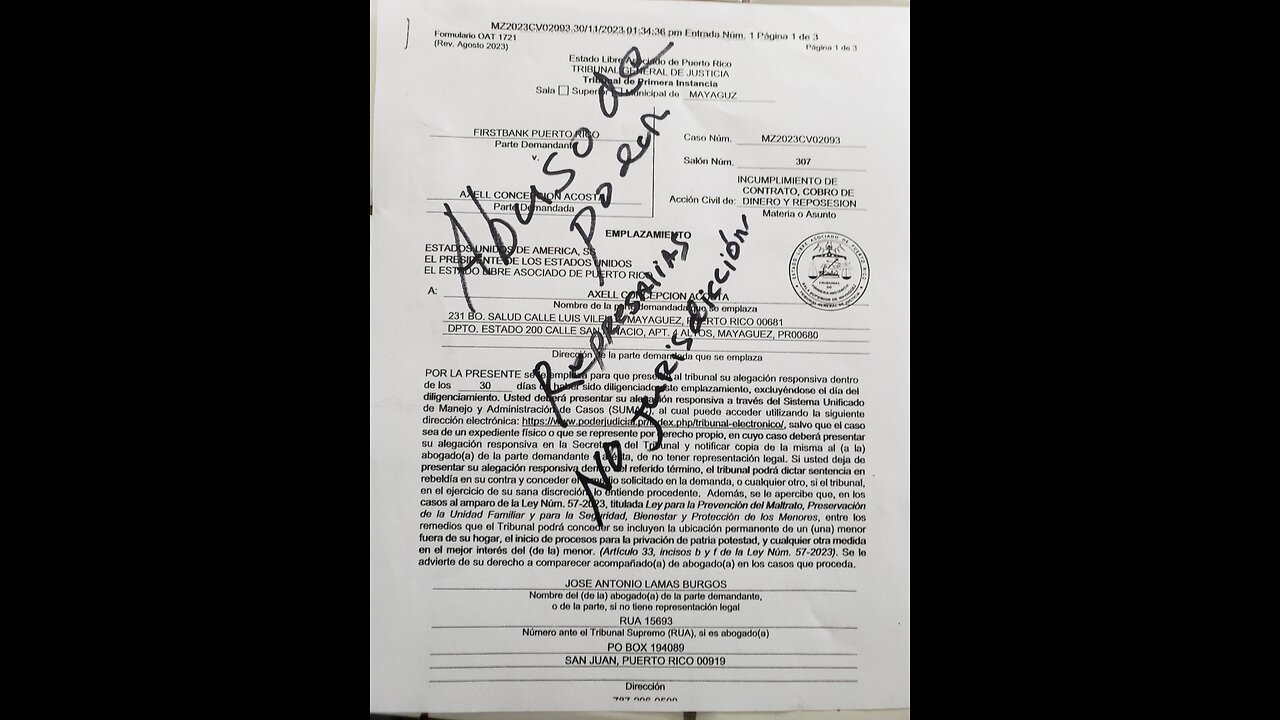 MZ2023CV02093 30/11/2023 01:34:36 pm Entrada Núm. 1 Página 1 de 3
Formulario OAT 1721
(Rev. Agosto 2023)
Página 1 de 3
Estado Libre Asociado de Puerto Rico
TRIBUNAL GENERAL DE JUSTICIA
Tribunal de Primera Instancia
Sala Superior Municipal de MAYAGUZ
FIRSTBANK PUERTO RICO
Parte Demandante
v.
AXELL CONCEPCION ACOSTA
Parte Demandada
Caso Núm. MZ2023CV02093
Salón Núm. 307
Acción Civil de: INCUMPLIMIENTO DE
CONTRATO, COBRO DE
DINERO Y REPOSESION
Materia o Asunto
EMPLAZAMIENTO
ESTADOS UNIDOS DE AMERICA, SS
EL PRESIDENTE DE LOS ESTADOS UNIDOS
EL ESTADO LIBRE ASOCIADO DE PUERTO RICO
A: AXELL CONCEPCION ACOSTA
Nombre de la parte demandada que se emplaza
231 BO. SALUD CALLE LUIS MAYAGUEZ, PUERTO RICO 00681
DPTO. ESTADO 200 CALLE SAN IGNACIO, APT. 4 ALTOS, MAYAGUEZ, PR00680
Dirección de la parte demandada que se emplaza
POR LA PRESENTE se le emplaza para que presente al tribunal su alegación responsiva dentro
de los 30 días de haber sido diligenciado este emplazamiento, excluyéndose el día del
diligenciamiento. Usted deberá presentar su alegación responsiva a través del Sistema Unificado
de Manejo y Administración de Casos (SUMAC), al cual puede acceder utilizando la siguiente
dirección electrónica: https://www.poderjudicial.pr/index.php/tribunal-electronico/, salvo que el caso
sea de un expediente físico o que se represente por derecho propio, en cuyo caso deberá presentar
su alegación responsiva en la Secretaría del Tribunal y notificar copia de la misma al (a la)
abogado(a) de la parte demandante o a ésta, de no tener representación legal. Si usted deja de
presentar su alegación responsiva dentro del referido término, el tribunal podrá dictar sentencia en
rebeldía en su contra y conceder el remedio solicitado en la demanda, o cualquier otro, si el tribunal,
en el ejercicio de su sana discreción, lo entiende procedente. Además, se le apercibe que, en los
casos al amparo de la Ley Núm. 57-2023, titulada Ley para la Prevención del Maltrato, Preservación
de la Unidad Familiar y para la Seguridad, Bienestar y Protección de los Menores, entre los
remedios que el Tribunal podrá conceder se incluyen la ubicación permanente de un (una) menor
fuera de su hogar, el inicio de procesos para la privación de patria potestad, y cualquier otra medida
en el mejor interés del (de la) menor. (Artículo 33, incisos b y f de la Ley Núm. 57-2023). Se le
advierte de su derecho a comparecer acompañado(a) de abogado(a) en los casos que proceda.
JOSE ANTONIO LAMAS BURGOS
Nombre del (de la) abogado(a) de la parte demandante,
o de la parte, si no tiene representación legal
RUA 15693
Número ante el Tribunal Supremo (RUA), si es abogado(a)
PO BOX 194089
SAN JUAN, PUERTO RICO 00919
Dirección
Abuso de
poder
Represalias
No jurisdicción